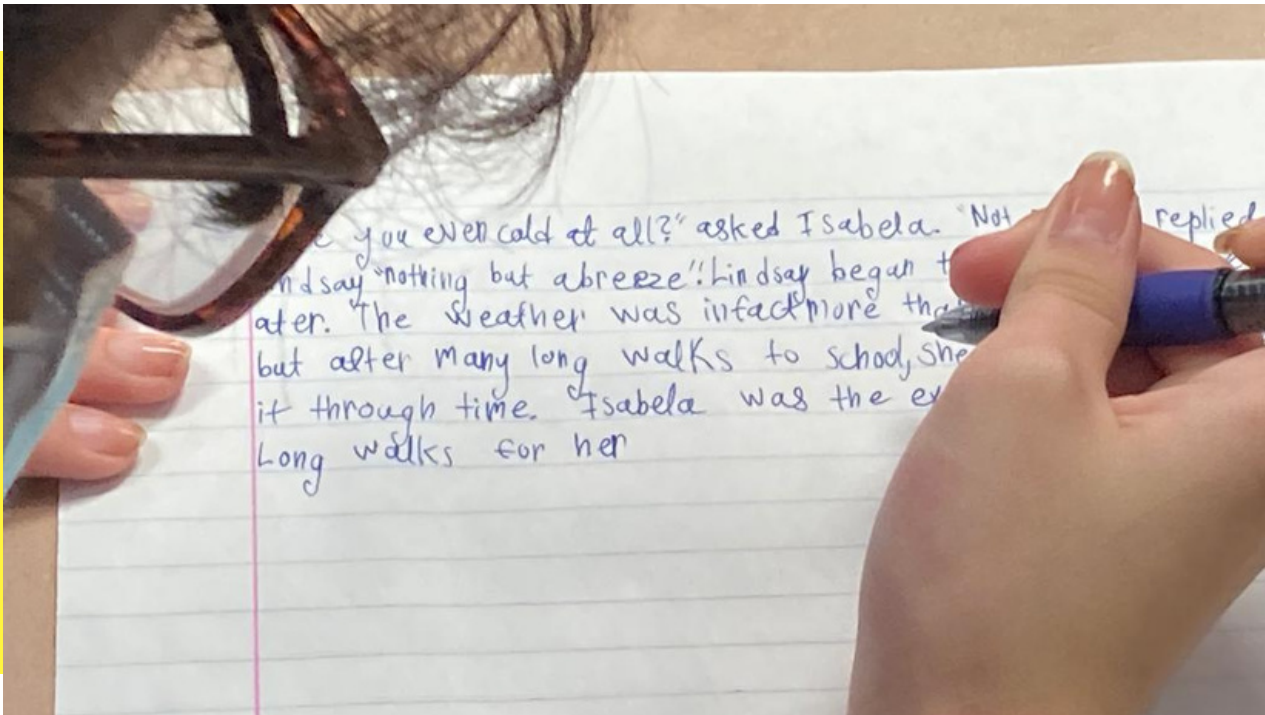 you even cold at all?" asked Isabela. "Not replied
"nothing but a breeze". Lindsay began
The weather was infact more
but after many long walks to school, she
it through time. Isabela was the
Long walks for her